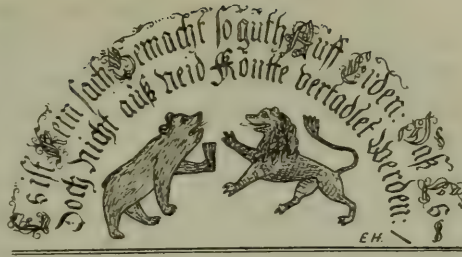 Es ist Kein sach Gemacht so guth Auff Erden: Daß Es
Doch nicht auß neid Kontte vertadlet Werden:
E H.